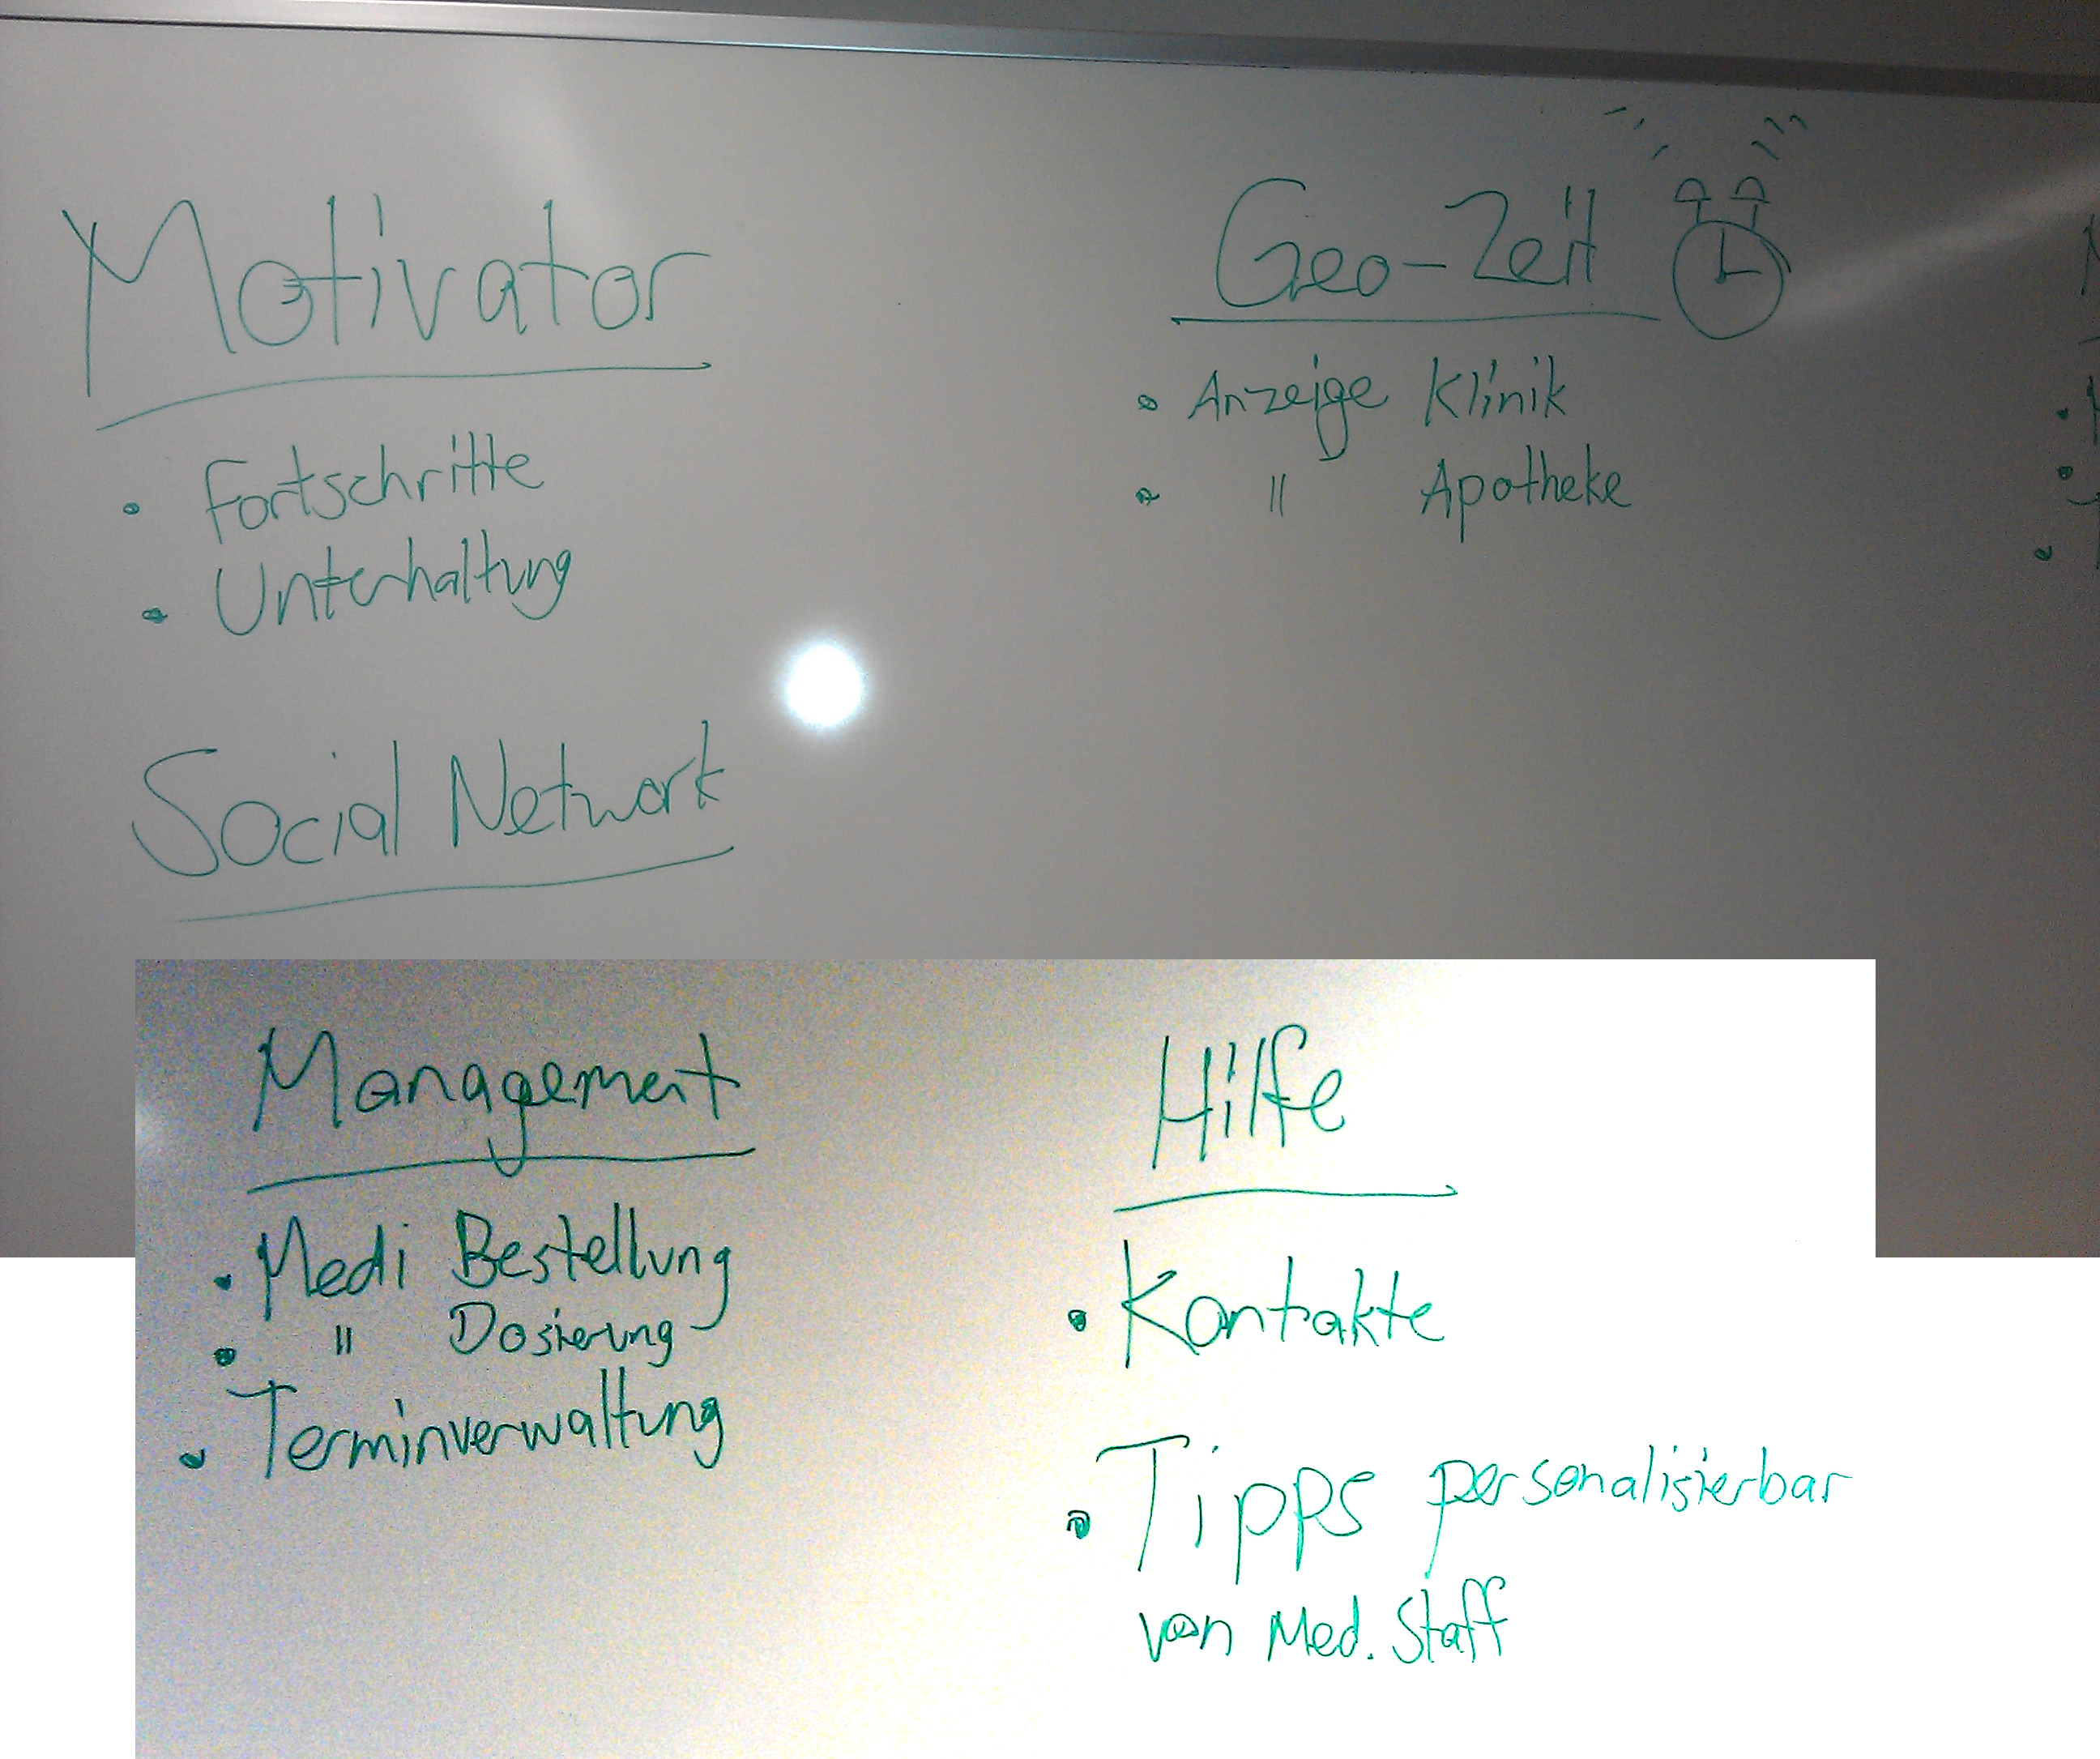 Motivator
• Fortschritte
• Unterhaltung
Social Network
Geo-Zeit
• Anzeige Klinik
• " Apotheke
Management
• Medi Bestellung
• " Dosierung
• Terminverwaltung
Hilfe
• Kontakte
• Tipps personalisierbar
von Med. Staff